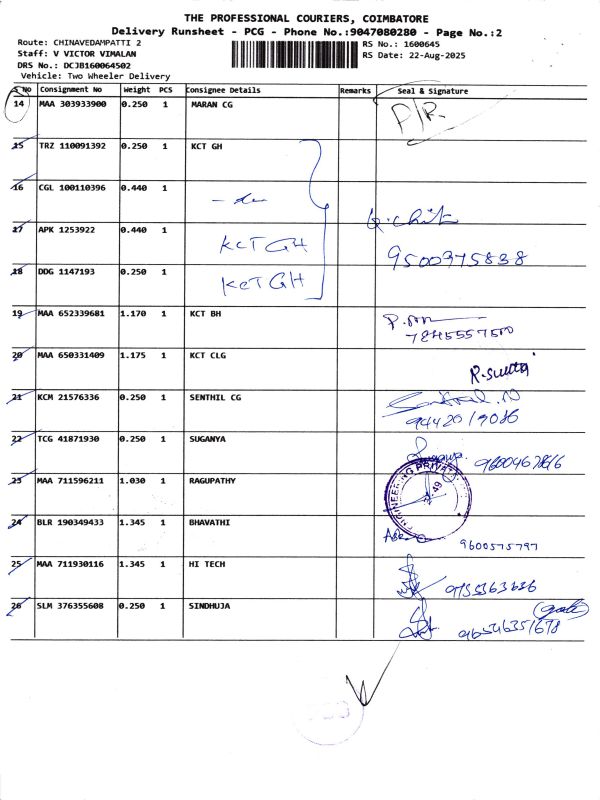 THE PROFESSIONAL COURIERS, COIMBATORE
Delivery Runsheet - PCG - Phone No.:9047080280 - Page No.:2
Route: CHINAVEDAMPATTI 2
Staff: V VICTOR VIMALAN
DRS No.: DCJB160064502
Vehicle: Two Wheeler Delivery
RS No.: 1600645
RS Date: 22-Aug-2025
S No Consignment No Weight PCS Consignee Details Remarks Seal & Signature
14 MAA 303933900 0.250 1 MARAN CG P/R.
15 TRZ 110091392 0.250 1 KCT GH
16 CGL 100110396 0.440 1
17 APK 1253922 0.440 1 KCT GH 9500375838
18 DDG 1147193 0.250 1 KCT GH
19 MAA 652339681 1.170 1 KCT BH
20 MAA 650331409 1.175 1 KCT CLG
21 KCM 21576336 0.250 1 SENTHIL CG
22 TCG 41871930 0.250 1 SUGANYA
23 MAA 711596211 1.030 1 RAGUPATHY ENGINEERING PRIVATE
24 BLR 190349433 1.345 1 BHAVATHI 9600575797
25 MAA 711930116 1.345 1 HI TECH
26 SLM 376355608 0.250 1 SINDHUJA